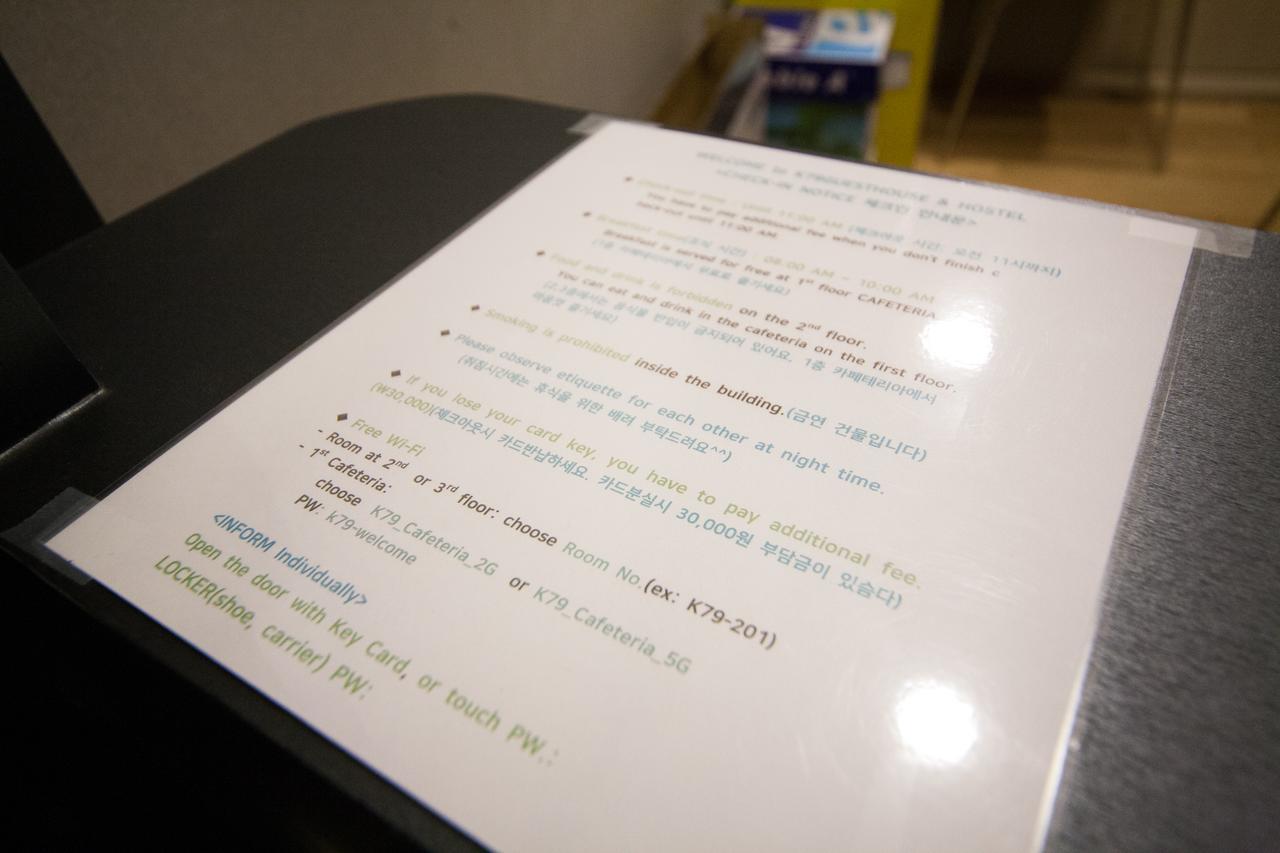 WELCOME to K79GUESTHOUSE & HOSTEL
<CHECK-IN NOTICE 체크인 안내문>
◆ Check-out time : until 11:00 AM (체크아웃 시간: 오전 11시까지)
You have to pay additional fee when you don't finish c
heck-out until 11:00 AM.
◆ Breakfast time(조식 시간) : 08:00 AM ~ 10:00 AM
Breakfast is served for free at 1st floor CAFETERIA
(1층 카페테리아에서 무료로 즐기세요)
◆ Food and drink is forbidden on the 2nd floor.
You can eat and drink in the cafeteria on the first floor.
(2,3층에서는 음식물 반입이 금지되어 있어요. 1층 카페테리아에서
마음껏 즐기세요)
◆ Smoking is prohibited inside the building.(금연 건물입니다)
◆ Please observe etiquette for each other at night time.
(취침시간에는 휴식을 위한 배려 부탁드려요^^)
◆ If you lose your card key, you have to pay additional fee.
(₩30,000)(체크아웃시 카드반납하세요. 카드분실시 30,000원 부담금이 있습다)
◆ Free Wi-Fi
- Room at 2nd or 3rd floor: choose Room No.(ex: K79-201)
- 1st Cafeteria:
choose K79_Cafeteria_2G or K79_Cafeteria_5G
PW: k79-welcome
<INFORM Individually>
Open the door with Key Card, or touch PW.:
LOCKER(shoe, carrier) PW: